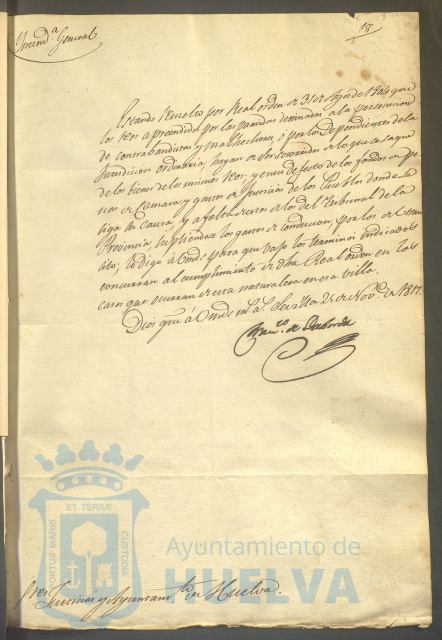 Yntend.ª General
18
Estando resuelto por Real orden de 31 de Agosto de 1804 que
los reos aprendidos por las partidas destinadas a la persecucion
de contrabandistas y malhechores, ó por los Dependientes de la
Jurisdiccion ordinaria, hayan de ser socorridos de lo que se saque
de los bienes de los mismos reos, y en su defecto de los fondos de Pe
nas de Camara y gastos de Justicia de los Pueblos donde se
siga la Causa, y a falta de estos de los del Tribunal de la
Provincia, supliendose los gastos de conduccion, por los de
lo digo á Vmds para que vajo los terminos indicados
concurran al cumplimiento de dha Real orden en los
casos que ocurran de esta naturaleza en esa villa.
Dios gue á Vmds m.s a.s Sevilla 25 de Nov.e de 1817.
Fran.co de Laborda
PORTUS MARIS
ET TERRÆ
CUSTODIA
Ayuntamiento de
HUELVA
Sres Justicias y Ayuntam.to de Huelva.